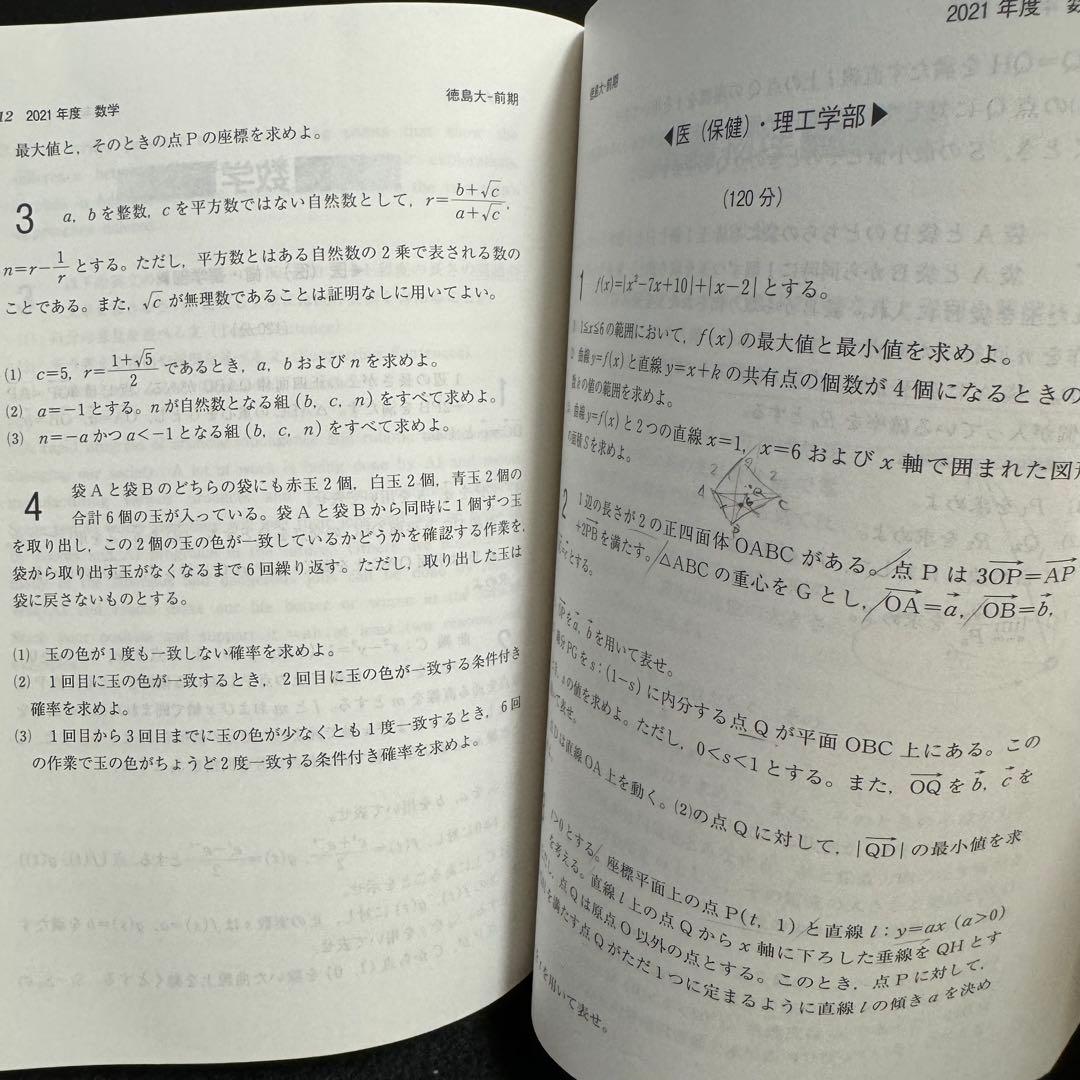 12 2021年度 数学
徳島大-前期
最大値と,そのときの点Pの座標を求めよ。
3 a, bを整数, cを平方数ではない自然数として, r=(b+√c)/(a+√c),
n=r−1/r とする。ただし,平方数とはある自然数の2乗で表される数の
ことである。また, √c が無理数であることは証明なしに用いてよい。
(1) c=5, r=(1+√5)/2 であるとき, a, bおよびnを求めよ。
(2) a=−1とする。nが自然数となる組(b, c, n)をすべて求めよ。
(3) n=−aかつa<−1となる組(b, c, n)をすべて求めよ。
4 袋Aと袋Bのどちらの袋にも赤玉2個,白玉2個,青玉2個の
合計6個の玉が入っている。袋Aと袋Bから同時に1個ずつ玉
を取り出し,この2個の玉の色が一致しているかどうかを確認する作業を,
袋から取り出す玉がなくなるまで6回繰り返す。ただし,取り出した玉は
袋に戻さないものとする。
(1) 玉の色が1度も一致しない確率を求めよ。
(2) 1回目に玉の色が一致するとき,2回目に玉の色が一致する条件付き
確率を求めよ。
(3) 1回目から3回目までに玉の色が少なくとも1度一致するとき,6回
の作業で玉の色がちょうど2度一致する条件付き確率を求めよ。
2021年度 数
徳島大-前期
◀医(保健)・理工学部▶
(120分)
1 f(x)=|x²−7x+10|+|x−2|とする。
1≤x≤6の範囲において, f(x)の最大値と最小値を求めよ。
曲線y=f(x)と直線y=x+kの共有点の個数が4個になるときの
数kの値の範囲を求めよ。
曲線y=f(x)と2つの直線x=1, x=6およびx軸で囲まれた図形
の面積Sを求めよ。
2
2
A
Q
G
C
B
2 1辺の長さが2の正四面体OABCがある。点Pは3OP→=AP→
+2PB→を満たす。△ABCの重心をGとし, OA→=a→, OB→=b→,
とする。
OP→をa→, b→を用いて表せ。
線分PGをs:(1−s)に内分する点Qが平面OBC上にある。この
とき, sの値を求めよ。ただし, 0<s<1とする。また, OQ→をb→, c→を
用いて表せ。
点Dは直線OA上を動く。(2)の点Qに対して, |QD→|の最小値を求
t>0とする。座標平面上の点P(t, 1)と直線l:y=ax (a>0)
を考える。直線l上の点Qからx軸に下ろした垂線をQHとす
点Qは原点O以外の点とする。このとき,点Pに対して,
を満たす点Qがただ1つに定まるように直線lの傾きaを決め
を用いて表せ。